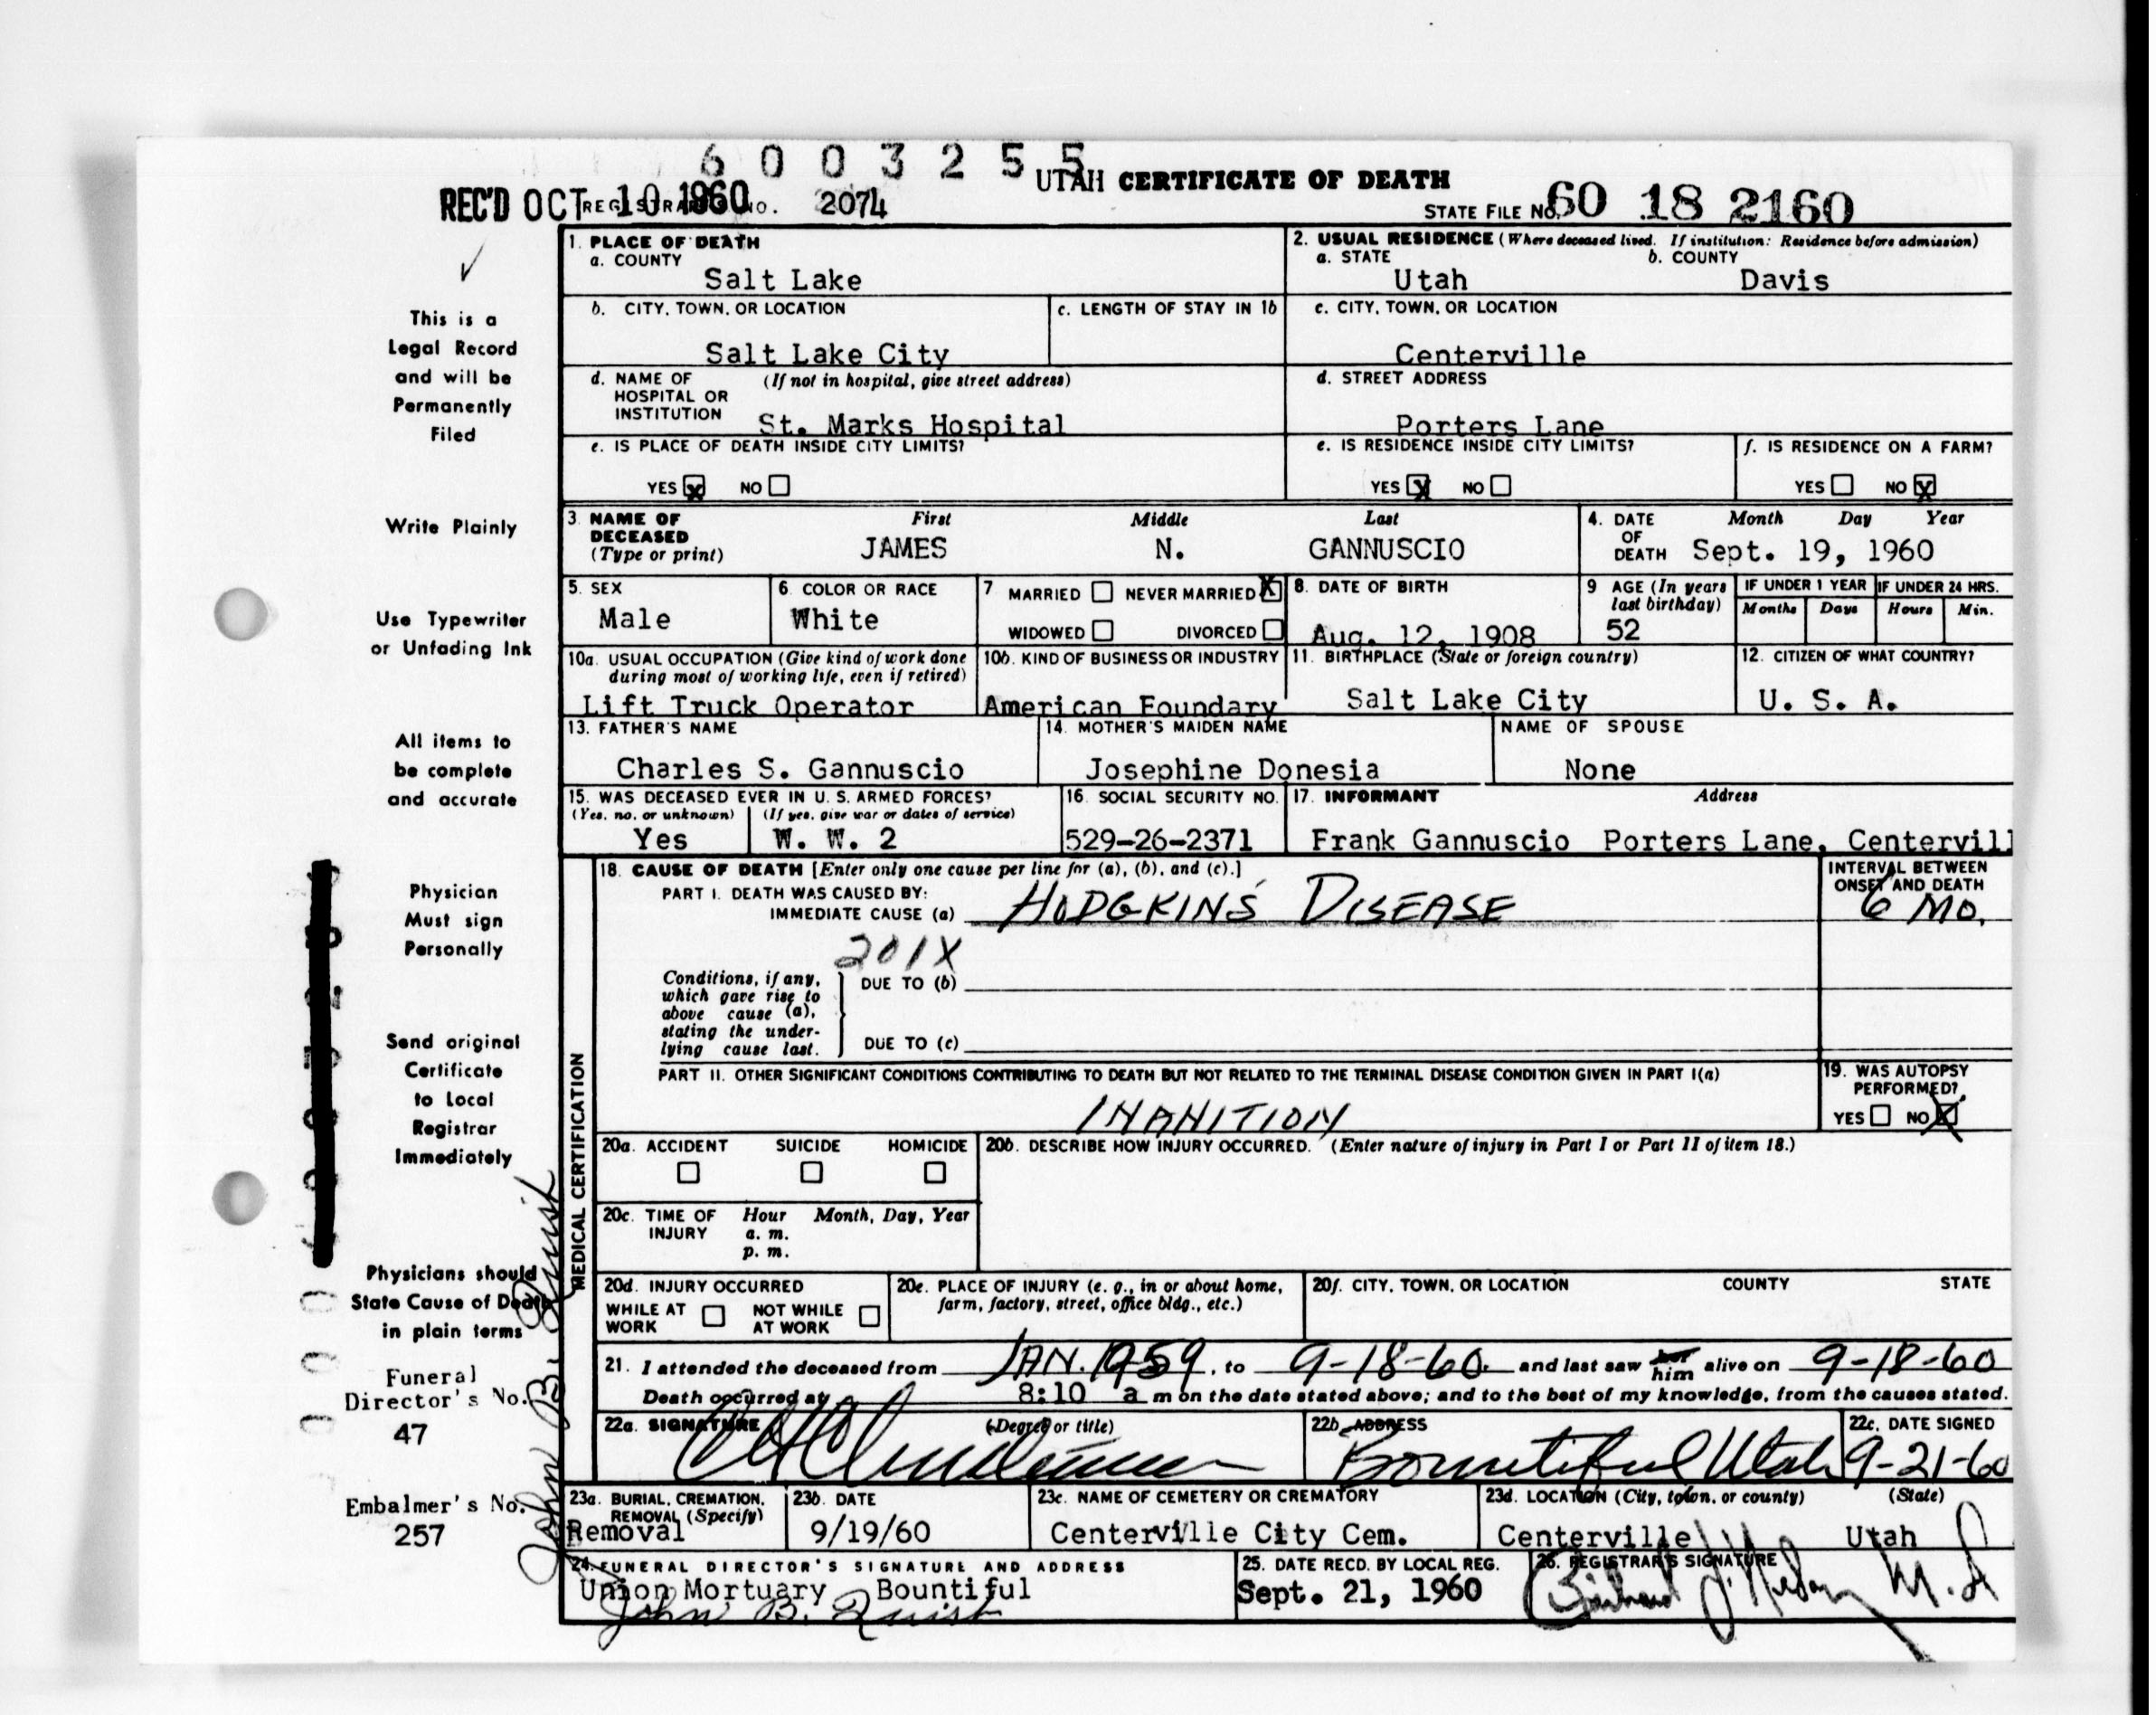 6 0 0 3 2 5 5
UTAH CERTIFICATE OF DEATH
REC'D OCT 10 1960
REGISTRAR'S NO. 2074
STATE FILE NO. 60 18 2160
This is a
Legal Record
and will be
Permanently
Filed
Write Plainly
Use Typewriter
or Unfading Ink
All items to
be complete
and accurate
Physician
Must sign
Personally
Send original
Certificate
to Local
Registrar
Immediately
Physicians should
State Cause of Death
in plain terms
Funeral
Director's No.
47
Embalmer's No.
257
John B. Quist
1. PLACE OF DEATH
a. COUNTY
Salt Lake
2. USUAL RESIDENCE (Where deceased lived. If institution: Residence before admission)
a. STATE b. COUNTY
Utah Davis
b. CITY, TOWN, OR LOCATION
Salt Lake City
c. LENGTH OF STAY IN 1b
c. CITY, TOWN, OR LOCATION
Centerville
d. NAME OF (If not in hospital, give street address)
HOSPITAL OR
INSTITUTION
St. Marks Hospital
d. STREET ADDRESS
Porters Lane
e. IS PLACE OF DEATH INSIDE CITY LIMITS?
YES X NO
e. IS RESIDENCE INSIDE CITY LIMITS?
YES X NO
f. IS RESIDENCE ON A FARM?
YES NO X
3. NAME OF
DECEASED
(Type or print)
First Middle Last
JAMES N. GANNUSCIO
4. DATE
OF
DEATH
Month Day Year
Sept. 19, 1960
5. SEX
Male
6. COLOR OR RACE
White
7 MARRIED NEVER MARRIED X
WIDOWED DIVORCED
8. DATE OF BIRTH
Aug. 12, 1908
9 AGE (In years
last birthday)
52
IF UNDER 1 YEAR
Months Days
IF UNDER 24 HRS.
Hours Min.
10a. USUAL OCCUPATION (Give kind of work done
during most of working life, even if retired)
Lift Truck Operator
10b. KIND OF BUSINESS OR INDUSTRY
American Foundary
11. BIRTHPLACE (State or foreign country)
Salt Lake City
12. CITIZEN OF WHAT COUNTRY?
U. S. A.
13. FATHER'S NAME
Charles S. Gannuscio
14. MOTHER'S MAIDEN NAME
Josephine Donesia
NAME OF SPOUSE
None
15. WAS DECEASED EVER IN U. S. ARMED FORCES?
(Yes, no, or unknown) (If yes, give war or dates of service)
Yes W. W. 2
16. SOCIAL SECURITY NO.
529-26-2371
17. INFORMANT Address
Frank Gannuscio Porters Lane, Centervill
18. CAUSE OF DEATH [Enter only one cause per line for (a), (b), and (c).]
PART I. DEATH WAS CAUSED BY:
IMMEDIATE CAUSE (a) HODGKIN'S DISEASE
INTERVAL BETWEEN
ONSET AND DEATH
6 MO.
201X
Conditions, if any,
which gave rise to
above cause (a),
stating the under-
lying cause last.
DUE TO (b)
DUE TO (c)
PART II. OTHER SIGNIFICANT CONDITIONS CONTRIBUTING TO DEATH BUT NOT RELATED TO THE TERMINAL DISEASE CONDITION GIVEN IN PART I(a)
INANITION
19. WAS AUTOPSY
PERFORMED?
YES NO X
MEDICAL CERTIFICATION
20a. ACCIDENT SUICIDE HOMICIDE
20b. DESCRIBE HOW INJURY OCCURRED. (Enter nature of injury in Part I or Part II of item 18.)
20c. TIME OF Hour Month, Day, Year
INJURY a. m.
p. m.
20d. INJURY OCCURRED
WHILE AT NOT WHILE
WORK AT WORK
20e. PLACE OF INJURY (e. g., in or about home,
farm, factory, street, office bldg., etc.)
20f. CITY, TOWN, OR LOCATION COUNTY STATE
21. I attended the deceased from JAN. 1959, to 9-18-60. and last saw her him alive on 9-18-60
Death occurred at 8:10 a m on the date stated above; and to the best of my knowledge, from the causes stated.
22a. SIGNATURE (Degree or title)
22b. ADDRESS
Bountiful Utah
22c. DATE SIGNED
9-21-60
23a. BURIAL, CREMATION,
REMOVAL (Specify)
Removal
23b. DATE
9/19/60
23c. NAME OF CEMETERY OR CREMATORY
Centerville City Cem.
23d. LOCATION (City, town, or county) (State)
Centerville Utah
24. FUNERAL DIRECTOR'S SIGNATURE AND ADDRESS
Union Mortuary Bountiful
John B. Quist
25. DATE RECD. BY LOCAL REG.
Sept. 21, 1960
26. REGISTRAR'S SIGNATURE
M.D